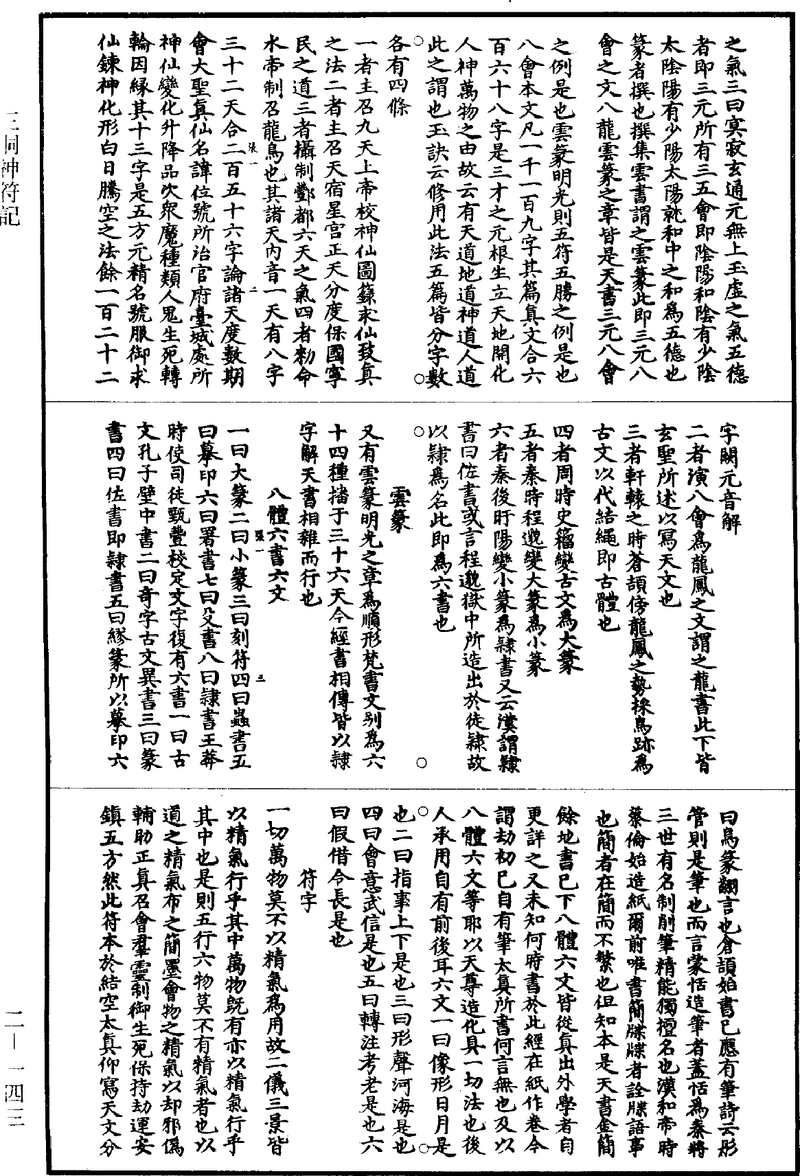 之氣三曰㝠寂玄通元無上玉虛之氣五德
者即三元所有三五會即陰陽和陰有少陰
太陰陽有少陽太陽就和中之和為五德也
篆者撰也撰集雲書謂之雲篆此即三元八
會之文八龍雲篆之章皆是天書三元八會
之例是也雲篆明光則五符五勝之例是也
八會本文凡一千一百九字其篇真文合六
百六十八字是三才之元根生立天地開化
人神萬物之由故云有天道地道神道人道
此之謂也玉訣云修用此法五篇皆分字數
各有四條
一者主召九天上帝校神仙圖籙求仙致真
之法二者主召天宿星宮正天分度保國寧
民之道三者攝制酆都六天之氣四者勑命
水帝制召龍鳥也其諸天內音一天有八字
三十二天合二百五十六字論諸天度數期
會大聖真仙名諱位號所治官府臺城處所
神仙變化升降品次衆魔種類人鬼生死轉
輪因緣其十三字是五方元精名號服御求
仙鍊神化形白日騰空之法餘一百二十二
字闕元音解
二者演八會為龍鳳之文謂之龍書此下皆
玄聖所述以寫天文也
三者軒轅之時蒼頡傍龍鳳之勢採鳥跡為
古文以代結繩即古體也
四者周時史籀變古文為大篆
五者秦時程邈變大篆為小篆
六者秦後盱陽變小篆為隸書又云漢謂隸
書曰佐書或言程邈獄中所造出於徒隸故
以隸為名此即為六書也
雲篆
又有雲篆明光之章為順形梵書文別為六
十四種播于三十六天今經書相傳皆以隸
字解天書相雜而行也
八體六書六文
一曰大篆二曰小篆三曰刻符四曰蟲書五
曰摹印六曰署書七曰殳書八曰隸書王莽
時使司徒甄豐校定文字復有六書一曰古
文孔子壁中書二曰奇字古文異書三曰篆
書四曰佐書即隸書五曰繆篆所以摹印六
曰鳥篆翻言也倉頡始書已應有筆詩云彤
管則是筆也而言蒙恬造筆者蓋恬為秦將
三世有名制削筆精能獨擅名也漢和帝時
蔡倫始造紙爾前唯書簡牒牒者詮牒語事
也簡者在簡而不繁也但知本是天書金簡
餘地書已下八體六文皆從真出外學者自
更詳之又未知何時書於此經在紙作卷今
謂劫初已自有筆太真所書何言無也及以
八體六文等耶以天尊造化具一切法也後
人承用自有前後耳六文一曰像形日月是
也二曰指事上下是也三曰形聲河海是也
四曰會意武信是也五曰轉注考老是也六
曰假借令長是也
符字
一切萬物莫不以精氣為用故二儀三景皆
以精氣行乎其中萬物既有亦以精氣行乎
其中也是則五行六物莫不有精氣者也以
道之精氣布之簡墨會物之精氣以却邪偽
輔助正真召會羣靈制御生死保持劫運安
鎮五方然此符本於結空太真仰寫天文分
三洞神符記
二—一四三